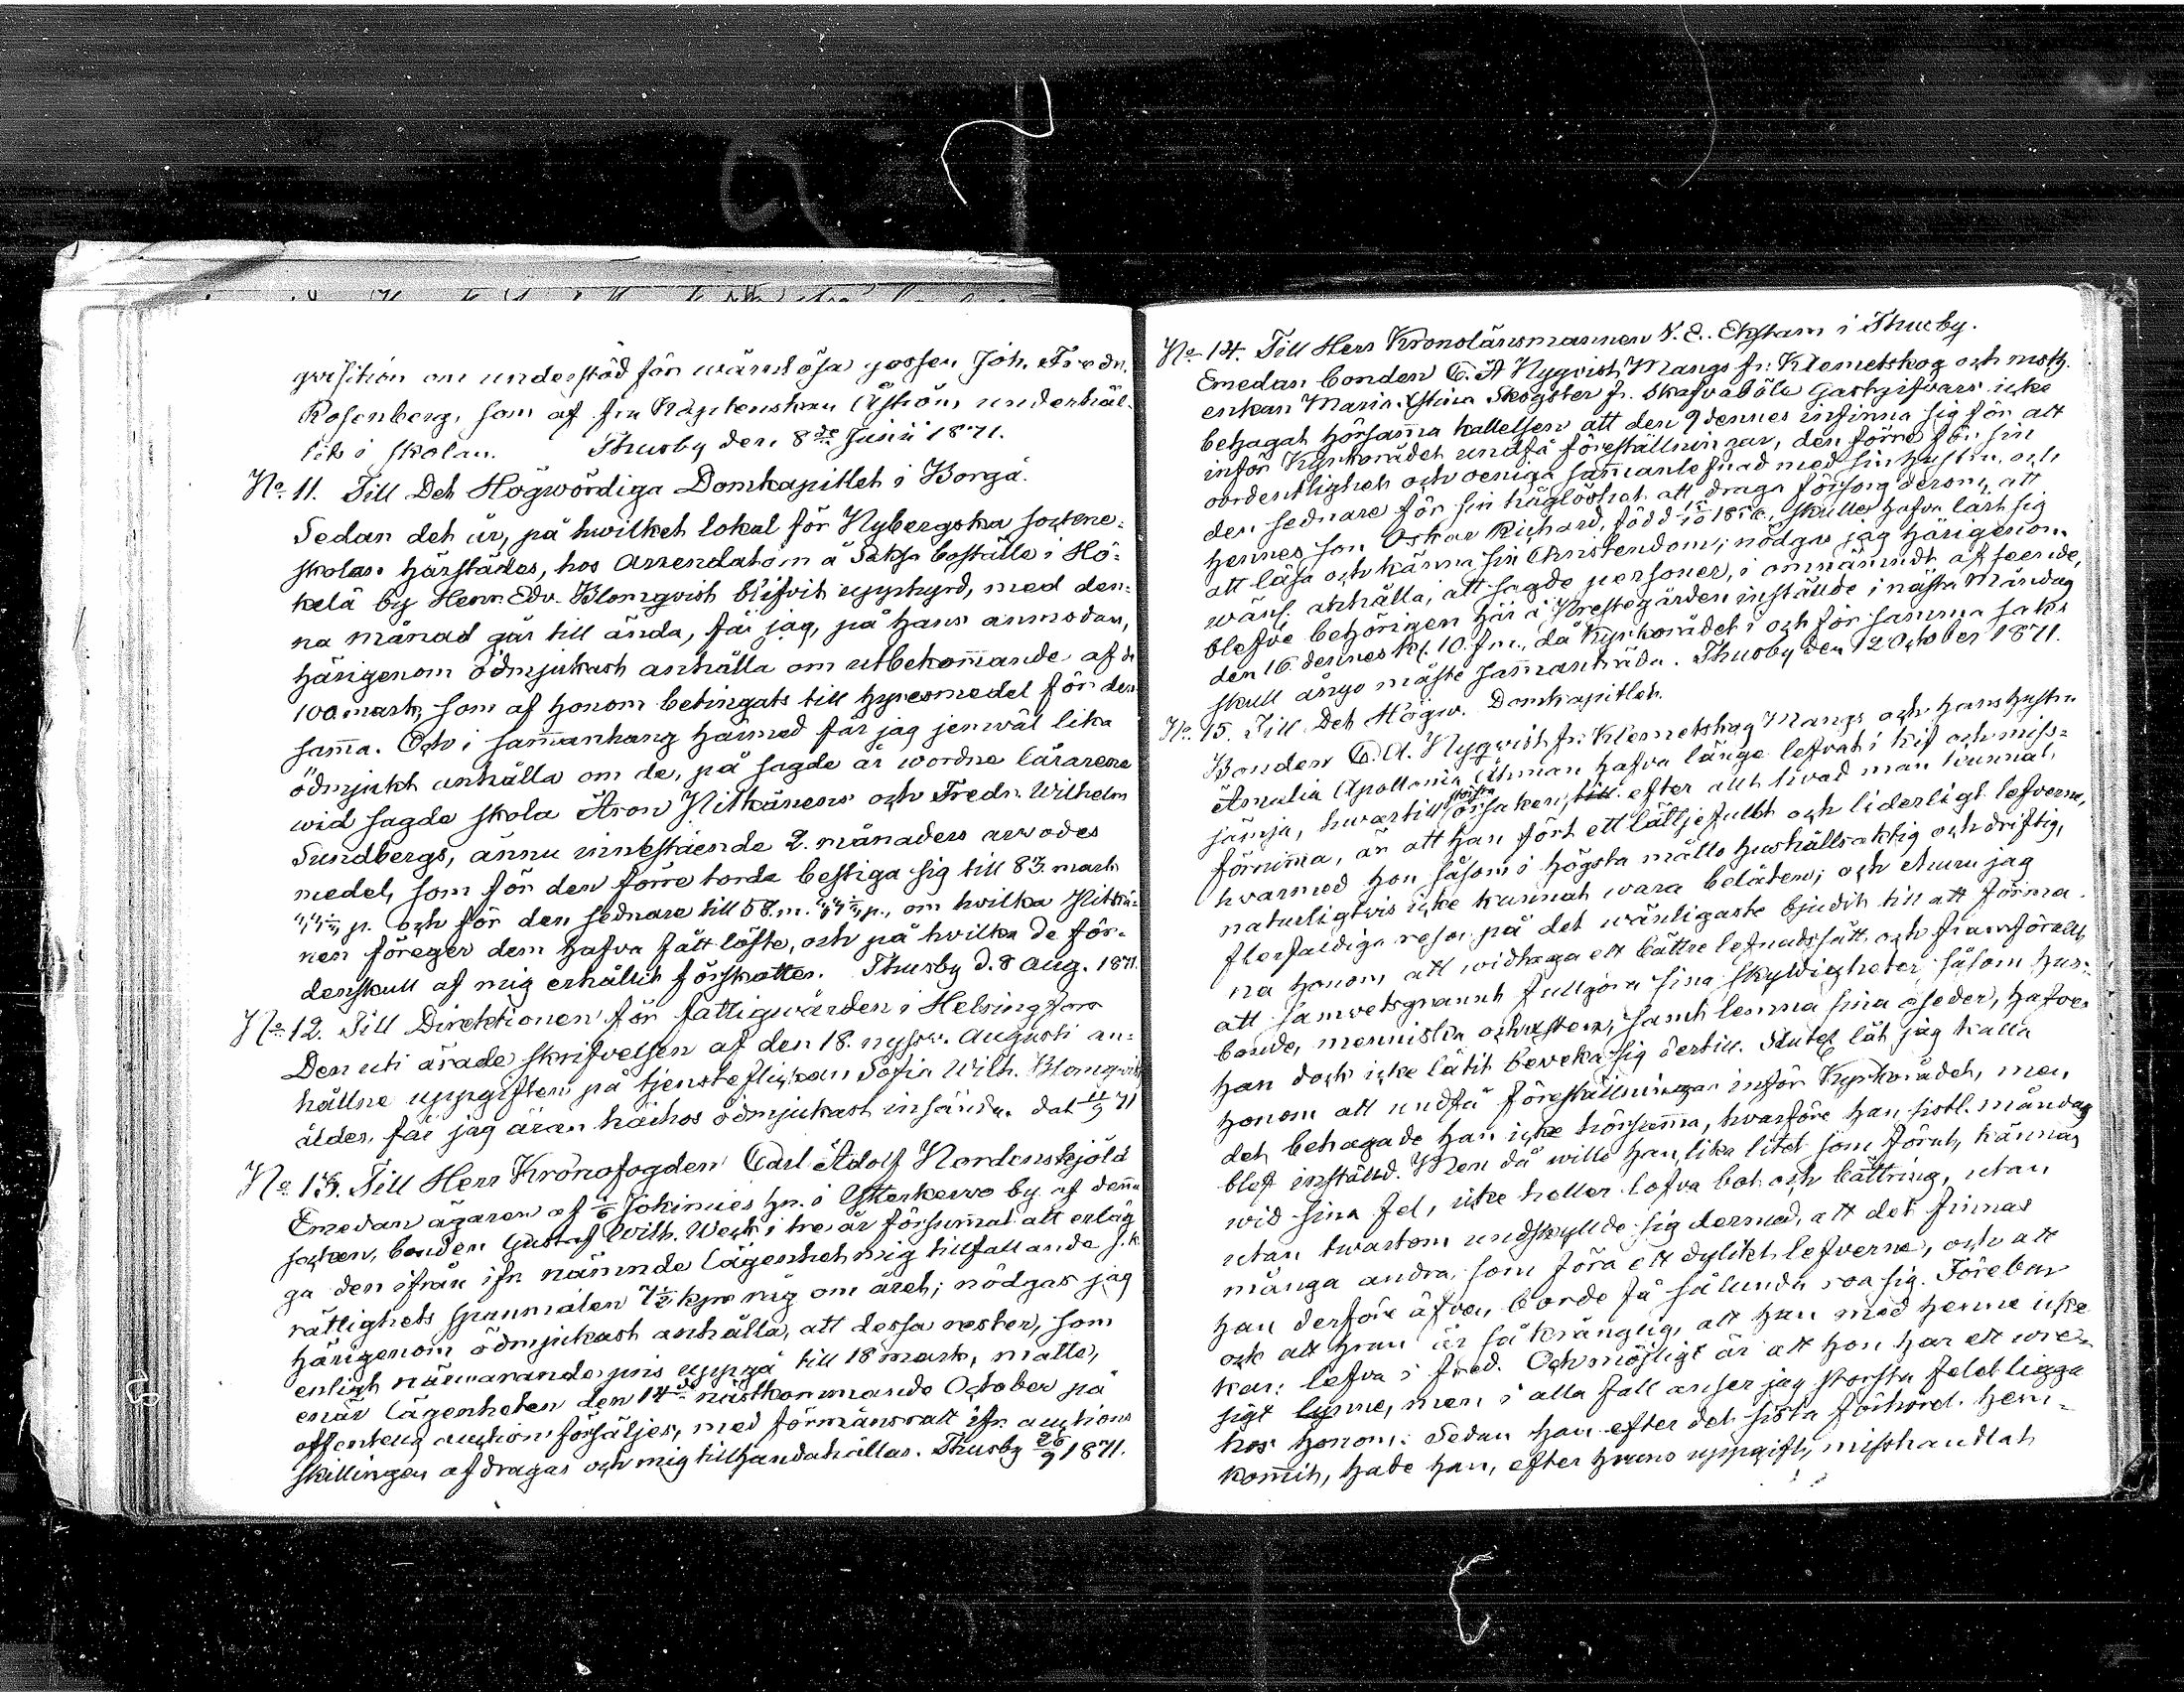 qvisition om understöd för wärnlösa gossen Joh. Fredr.
Rosenberg, som af fru Kaptenskan Åström underhål-
lits i skolan. Thusby den 8de Junii 1871.
No 11. Till Det Högwördiga Domkapitlet i Borgå.
Sedan det år, på hwilket lokal för Nybergska sockne-
skolan härstädes, hos Arrendatorn å Saksa boställe i Hö-
kelä by Henr. Edv. Blomqvist blifvit upphyrd, med den-
na månad går till ända, får jag, på hans anmodan,
härigenom ödmjukast anhålla om utbekommande af de
100 mark, som af honom betingats till hyresmedel för den-
samma. Och i sammanhang härmed får jag jemwäl lika
ödmjukt anhålla om de, på sagde år wordne lärarene
wid sagde skola Aron Pitkänens och Fredr. Wilhelm
Sundbergs, ännu innestående 2. månaders arwodes
medel, som för den förre torde bestiga sig till 83. mark
och för den sednare till 58. m. om hwilka Pitkä-
nen föreger dem hafva fått löfte, och på hwilka de för-
denskull af mig erhållit förskotter. Thusby d. 8 Aug. 1871.
No 12. Till Direktionen för fattigwården i Helsingfors
Den uti ärade skrifvelsen af den 18. nyssw. Augusti an-
hållne uppgiften på tjensteflickan Sofia Wilh. Blomqvists
ålder, får jag äran härhos ödmjukast insända. dat 11/9 71
No 13. Till Herr Kronofogden Carl Adolf Nordenskjöld
Emedan ägaren af 1/6 Jokimies hn. i Ytterkerwo by af denna
socken, bonden Gustaf Wilh. Weck i tre år försummat att erläg
ga den ifrån ifr. nämnde lägenhet mig tillfallande s.k.
rättighets spannmålen 7½ kpr råg om året; nödgas jag
härigenom ödmjukast anhålla, att dessa rester, som
enligt närwarande pris uppgå till 18 mark, måtte,
enär lägenheten den 14de nästkommande October på
offentelig auction försäljes, med förmånsrätt ifr. auctions
skillingen afdragas och mig tillhandahållas. Thusby 26/9 1871.
No 14. Till Herr Kronolänsmannen N. E. Ekstam i Thusby.
Emedan bonden C. A Nyqvist Mangs fr. Klemetskog och
enkan Maria Stina Skogster fr. Skafvaböle Gästgifvars icke
behagat hörsamma kallelsen att den 9 dennes infinna sig för att
inför Kyrkorådet undfå föreställningar, den förre för sin
oordentlighet och oeniga sammanlefnad med sin hustru, och
den sednare för sin håglöshet att draga försorg derom, att
hennes son Oskar Richard, född skulle hafva lärt sig
att läsa och känna sin Christendom; nödgas jag härigenom
wänl. anhålla, att sagde personer, i omnämndt afseende,
blefve behörigen här å Prestegården instälde i nästa Måndag
den 16. dennes kl. 10. f.m., då Kyrkorådet i och för samma saks
skull ånyo måste sammanträda. Thusby den 12 October 1871.
No 15. Till Det Högw. Domkapitlet.
Bonden C. A. Nyqvist fr. Klemetskog Mangs och hans hustru
Amalia Apollonia Öhman hafva länge lefvat i kif och miss-
sämja, hwartill största orsaken, efter allt hvad man kunnat
förnimma, är att han fört ett lättjefullt och liderligt lefverne,
hwarmed hon såsom i högsta måtto hushållsaktig och driftig,
naturligtvis icke kunnat wara belåten; och ehuru jag
flerfaldiga resor på det wänligaste bjudit till att förma-
na honom, att widtaga ett bättre lefnadssätt och framförallt
att samwetsgrannt fullgöra sina skyldigheter, såsom hus-
bonde, menniska och kristen, samt lemna sina oseder, hafver
han dock icke låtit beveka sig dertill. Slutel. lät jag kalla
honom att undfå föreställningar inför Kyrkorådet, men
det behagade han icke hörsamma, hwarföre han sistl. måndag
blef inställd. Men då wille han, lika litet som förut, kännas
wid sina fel, icke heller lofva bot och bättring, utan
utan twärtom undskyllde sig dermed, att det finnes
många andra, som föra ett dylikt lefverne, och att
han derföre äfven borde få sålunda roa sig. Förebar
ock att hon är så krånglig, att han med henne icke
kan lefva i fred. Och möjligt är att hon har ett wre-
sigt lynne, men i alla fall anser jag största felet ligga
hos honom. Sedan han efter det sista förhöret hem-
kommit, hade han, efter hennes uppgift, misshandlat